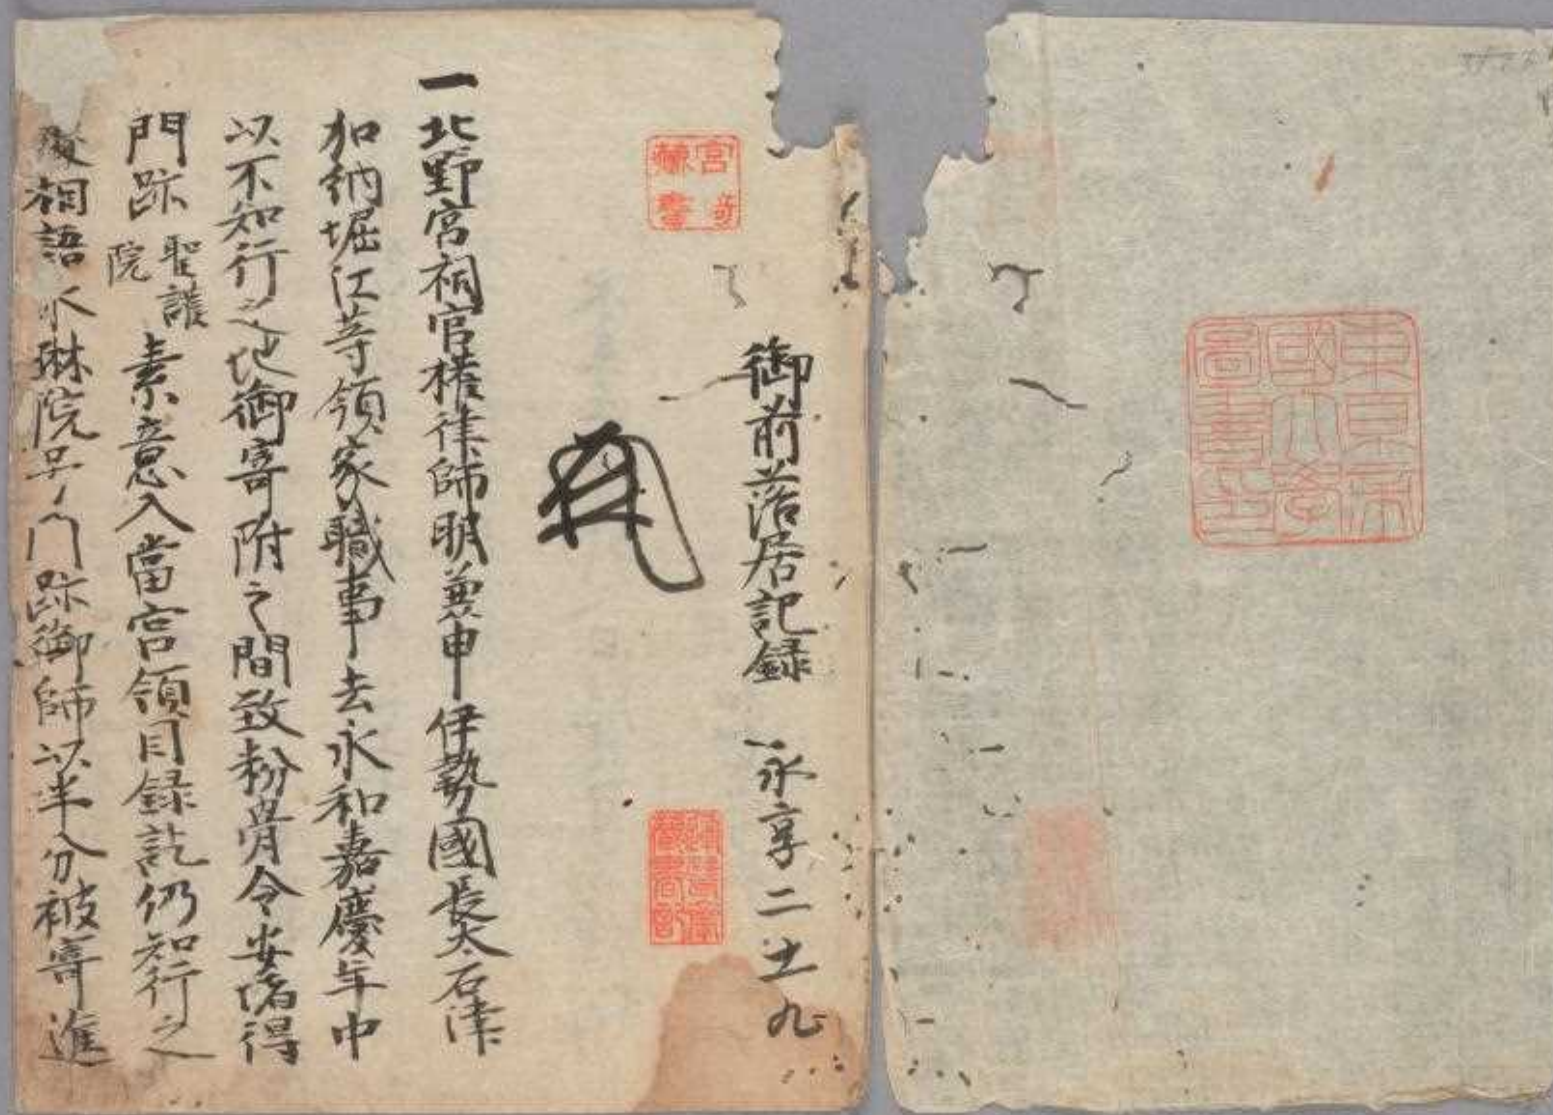 東京帝
國大學
圖書印
御前落居記録 永享二 十二 九
宮崎
藏書
一北野宮祠官權律師明兼申伊勢國長太石津
加納堀江等領家職事去永和嘉慶年中
以不知行之地御寄附之間致粉骨令安堵得
門跡聖護院素意入當宮領目録訖仍知行之
相語 琳院号門跡御師以半分被寄進